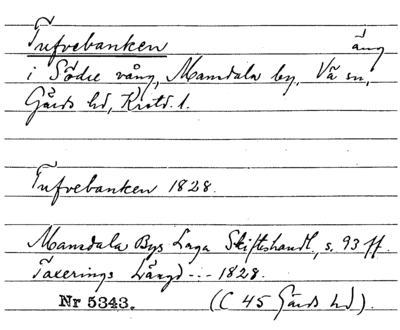 Tufvebanken äng
i Södre vång, Mansdala by, Vä sn,
Gärds hd, Krist. l.
Tufvebanken 1828.
Mansdala Bys Laga Skifteshandl, s. 93 ff.
Taxerings Längd -:- 1828.
Nr 5343. (C 45 Gärds hd).